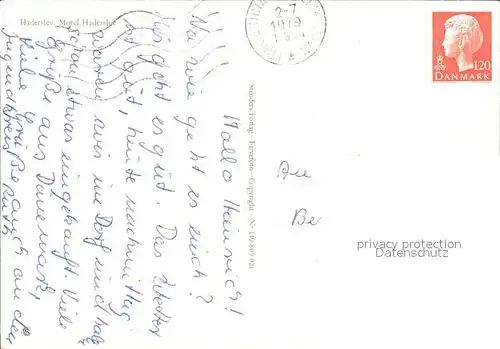 Haderslev, Motel Haderslev
Hallo Heinrich!
Na, wie geht es euch?
Mir geht es gut. Das Wetter
ist gut, heute nachmittag
waren wir im Dorf und habe
schon etwas eingekauft. Viele
Grüße aus Dänemark,
Liebe Grüße auch an den
Jugendkreis
Stenders Forlag - Farvefoto - Copyright - Nr 109 809 021
2-7
1979
120
DANMARK
An
Be
privacy protection
Datenschutz